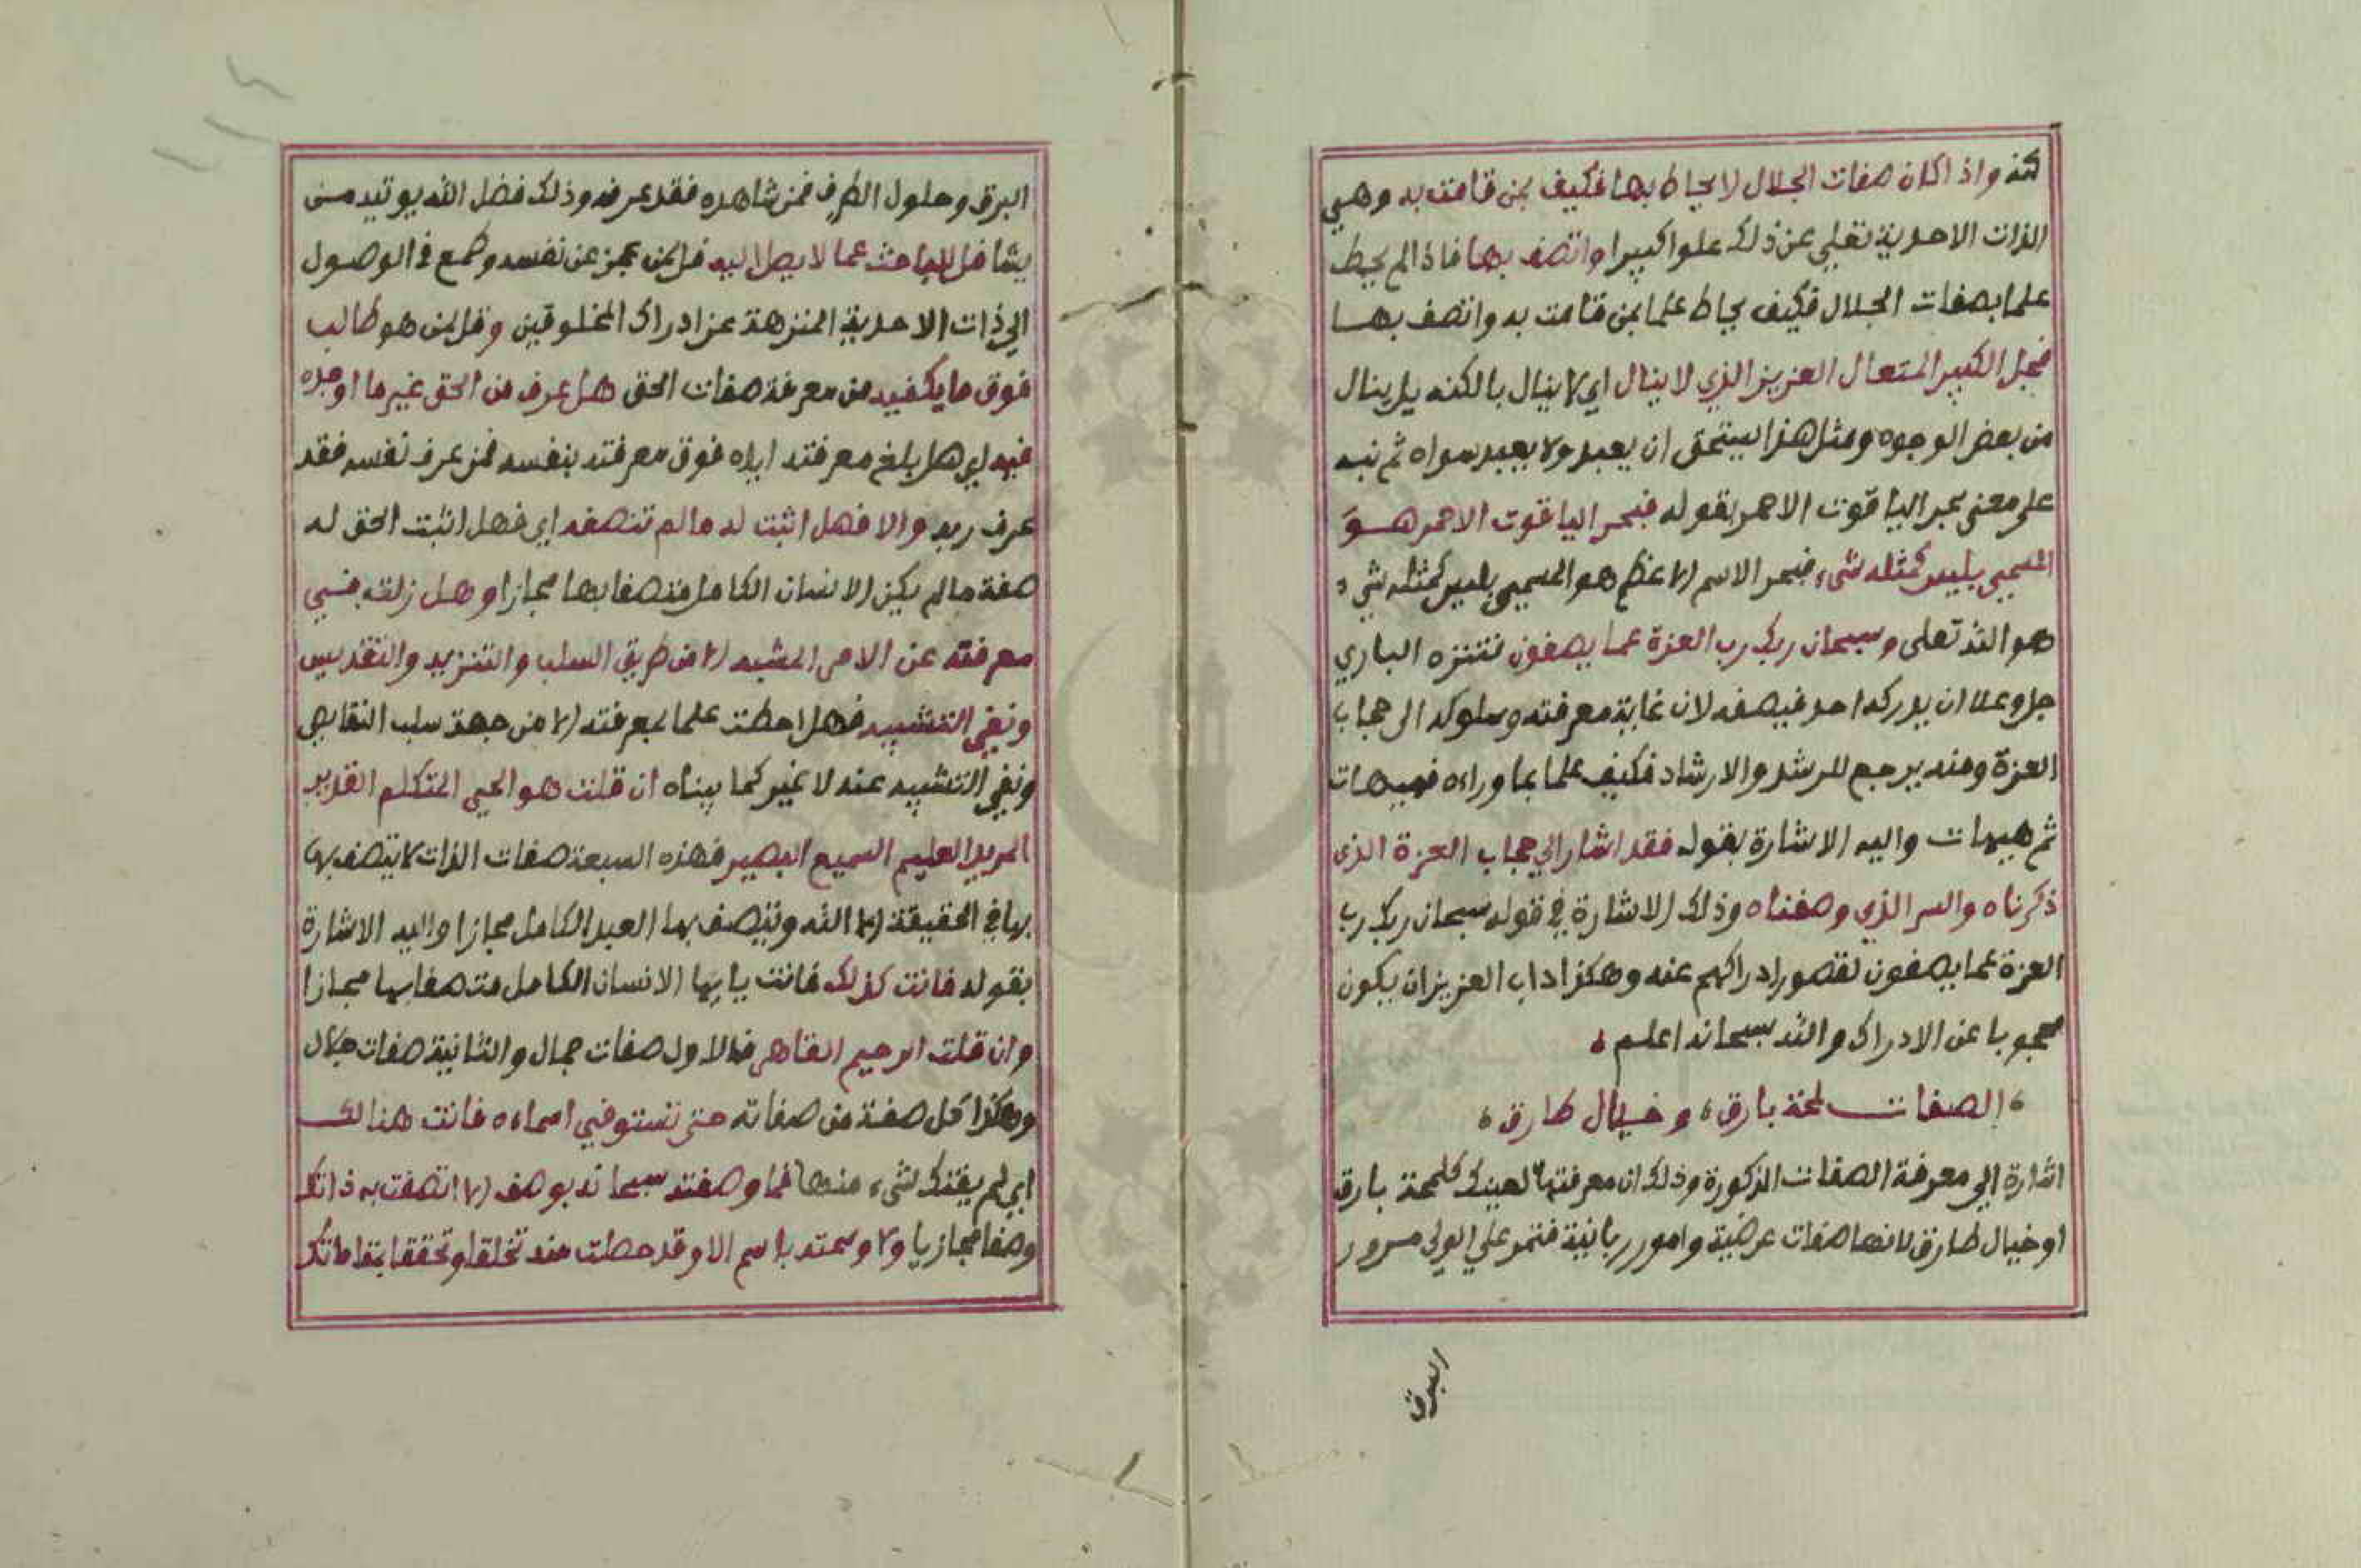 كنه واذا كان صفات الجلال لا يحاط بها فكيف بمن قامت به وهي
الذات الاحدية تعلى عن ذلك علوا كبيرا واتصف بها فاذا لم يحيط
علما بصفات الجلال فكيف يحاط علما بمن قامت به واتصف بها
فجل الكبير المتعال العزيز الذي لا ينال اي لا ينال بالكنه بل ينال
من بعض الوجوه ومثل هذا يستحق ان يعبد ولا يعبد سواه ثم نبه
على معنى بحر الياقوت الاحمر بقوله فبحر الياقوت الاحمر هو
المسمى بليس كمثله شيء فبحر الاسم الاعظم هو المسمى بليس كمثله شيء
هو الله تعلى وسبحان ربك رب العزة عما يصفون فتنزه الباري
جل وعلا ان يدركه احد فيصفه لان غاية معرفته وسلوكه الى حجاب
العزة ومنه يرجع للرشد والارشاد فكيف علما بما وراءه فهيهات
ثم هيهات واليه الاشارة بقوله فقد اشار الي حجاب العزة الذي
ذكرناه والسر الذي وصفناه وذلك الاشارة في قوله سبحان ربك رب
العزة عما يصفون لقصور ادراكهم عنه وهكذا داب العزيز ان يكون
محجوبا عن الادراك والله سبحانه اعلم
الصفات لمحة بارق، وخيال طارق،
اشارة الي معرفة الصفات المذكورة وذلك ان معرفتها لعبيدك كلمحة بارق
او خيال طارق لانها صفات عرضية وامور ربانية فتمر علي الولي مرور
البرق
البرق وحلول الطرف فمن شاهده فقد عرفه وذلك فضل الله يوتيه من
يشا قل للباحث عما لا يصل اليه قل لمن عجز عن نفسه وطمع في الوصول
الي ذات الاحدية المنزهة عن ادراك المخلوقين وقل لمن هو طالب
فوق ما يكفيه من معرفة صفات الحق هل عرف من الحق غير ما اوجده
فيه اي هل بلغ معرفته اياه فوق معرفته بنفسه فمن عرف نفسه فقد
عرف ربه والا فهل اثبت له ما لم تتصفه اي فهل اثبت الحق له
صفة ما لم يكن الانسان الكامل متصفا بها مجازا وهل زلت في
معرفته عن الامر المشبه الا من طريق السلب والتنزيه والتقديس
ونفي التشبيه فهل احطت علما بمعرفته الا من جهة سلب النقايص
ونفي التشبيه عنه لا غير كما بيناه ان قلت هو الحي المتكلم القدير
المريد العليم السميع البصير فهذه السبعة صفات الذات لا يتصف بها
بها في الحقيقة الا الله ويتصف بها العبد الكامل مجازا واليه الاشارة
بقوله فانت كذلك فانت يا ايها الانسان الكامل متصفا بها مجازا
وان قلت الرحيم القاهر فالاول صفات جمال والثانية صفات جلال
وهكذا كل صفة من صفاته حتى تستوفي اسماءه فانت هنالك
اي لم يفتك شيء منها فما وصفته سبحانه بوصف الا اتصفت به ذاتك
وصفا مجازيا ولا وسمته باسم الا وقد حصلت منه تخلقا وتحققا بمقاماتك